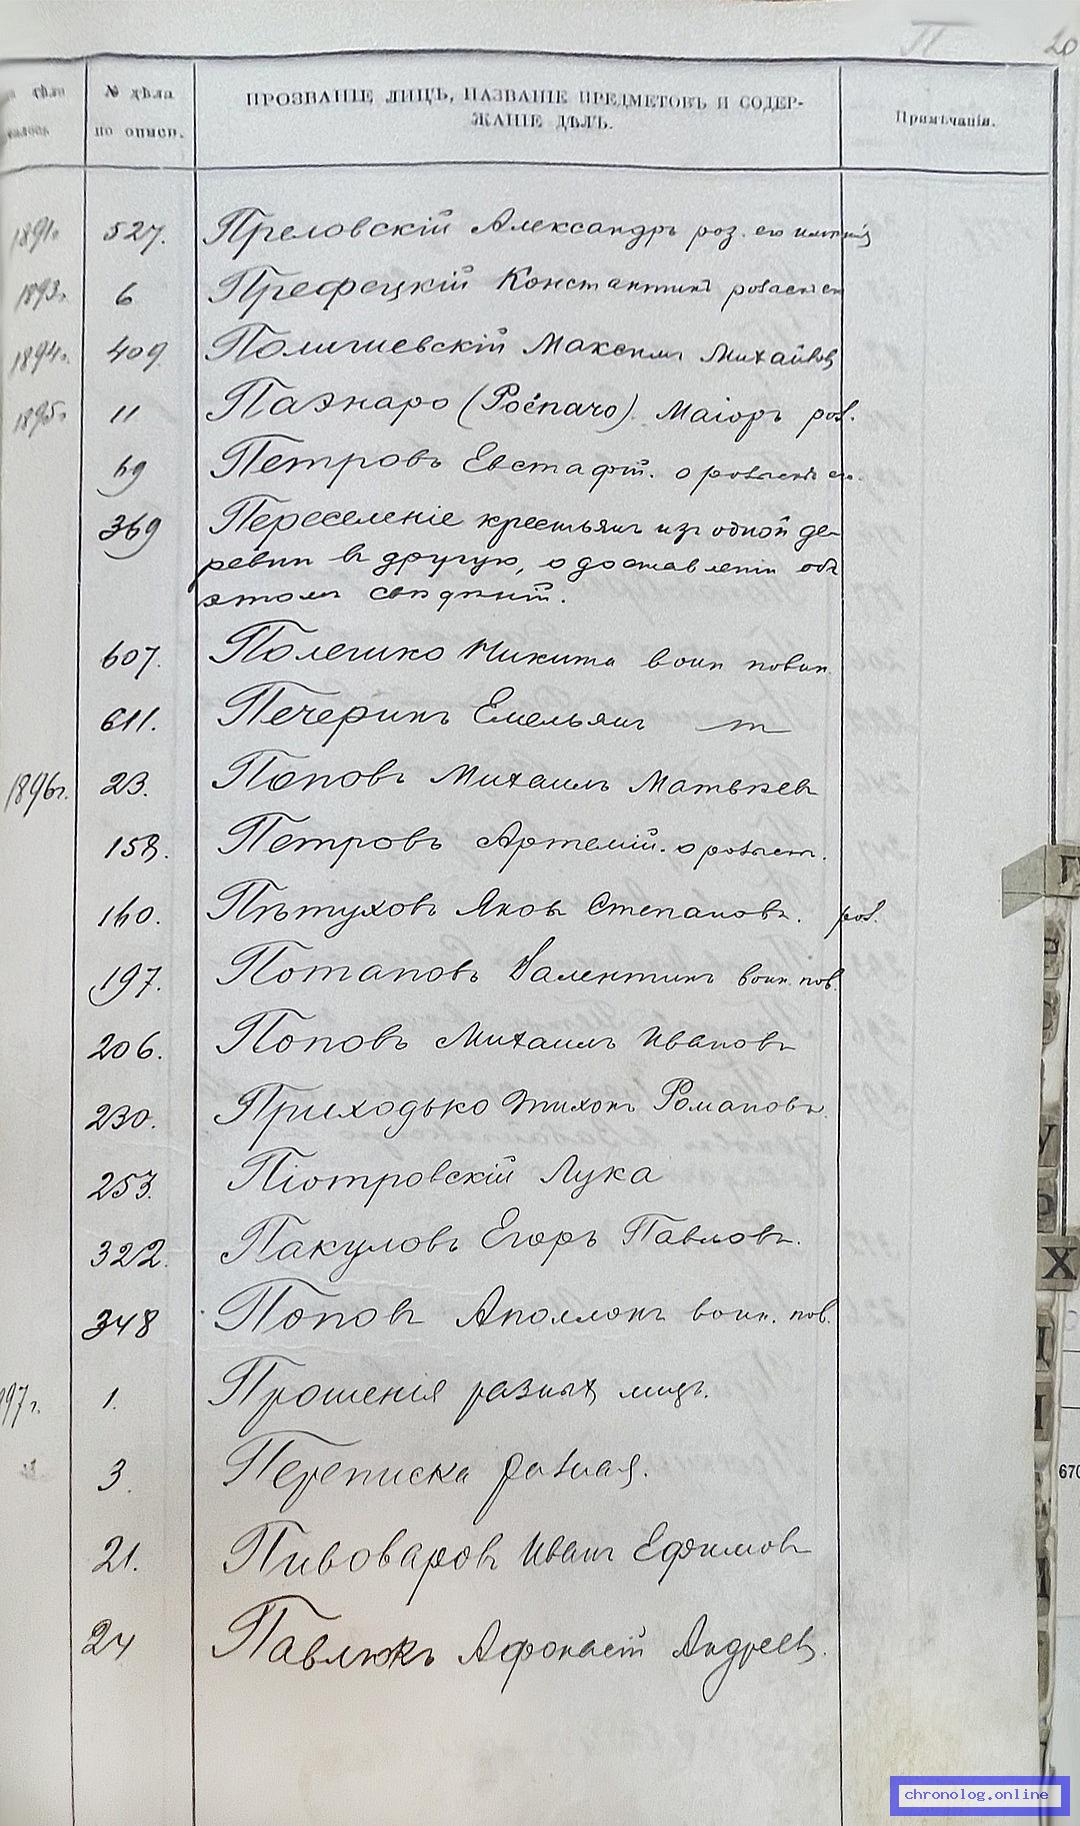 П 20
дѣло № дѣла по описи. ПРОЗВАНІЕ ЛИЦЪ, НАЗВАНІЕ ПРЕДМЕТОВЪ И СОДЕР-
ЖАНІЕ ДѢЛЪ. Примѣчанія.
1891г. 527. Преловскій Александръ роз. его имѣнія
1893г. 6 Префецкій Константинъ розыск
1894г. 409 Полишевскій Максимъ Михайлов
1895г 11 Паэнаро (Роспачо). Маіоръ роз.
69 Петровъ Евстафій. о розыскѣ его.
369 Переселеніе крестьянъ изъ одной де-
ревни въ другую, о доставленіи объ
этомъ свѣдѣній.
607. Полешко Никита воин повин.
611. Печеринъ Емельянъ
1896г. 23. Поповъ Михаилъ Матвѣев
158. Петровъ Артемій. о розыск.
160. Пѣтуховъ Яковъ Степановъ. роз.
197. Потаповъ Валентинъ воин. пов.
206. Поповъ Михаилъ Ивановъ
230. Приходько Тихонъ Романовъ
253. Піотровскій Лука
322. Пакуловъ Егоръ Павловъ.
348 Поповъ Аполлонъ воин. пов.
97г. 1. Прошенія разныхъ лицъ.
3. Переписка разная.
21. Пивоваровъ Иванъ Ефимовъ
24 Павлюкъ Афонасій Андреев.
Х
670
chronolog.online